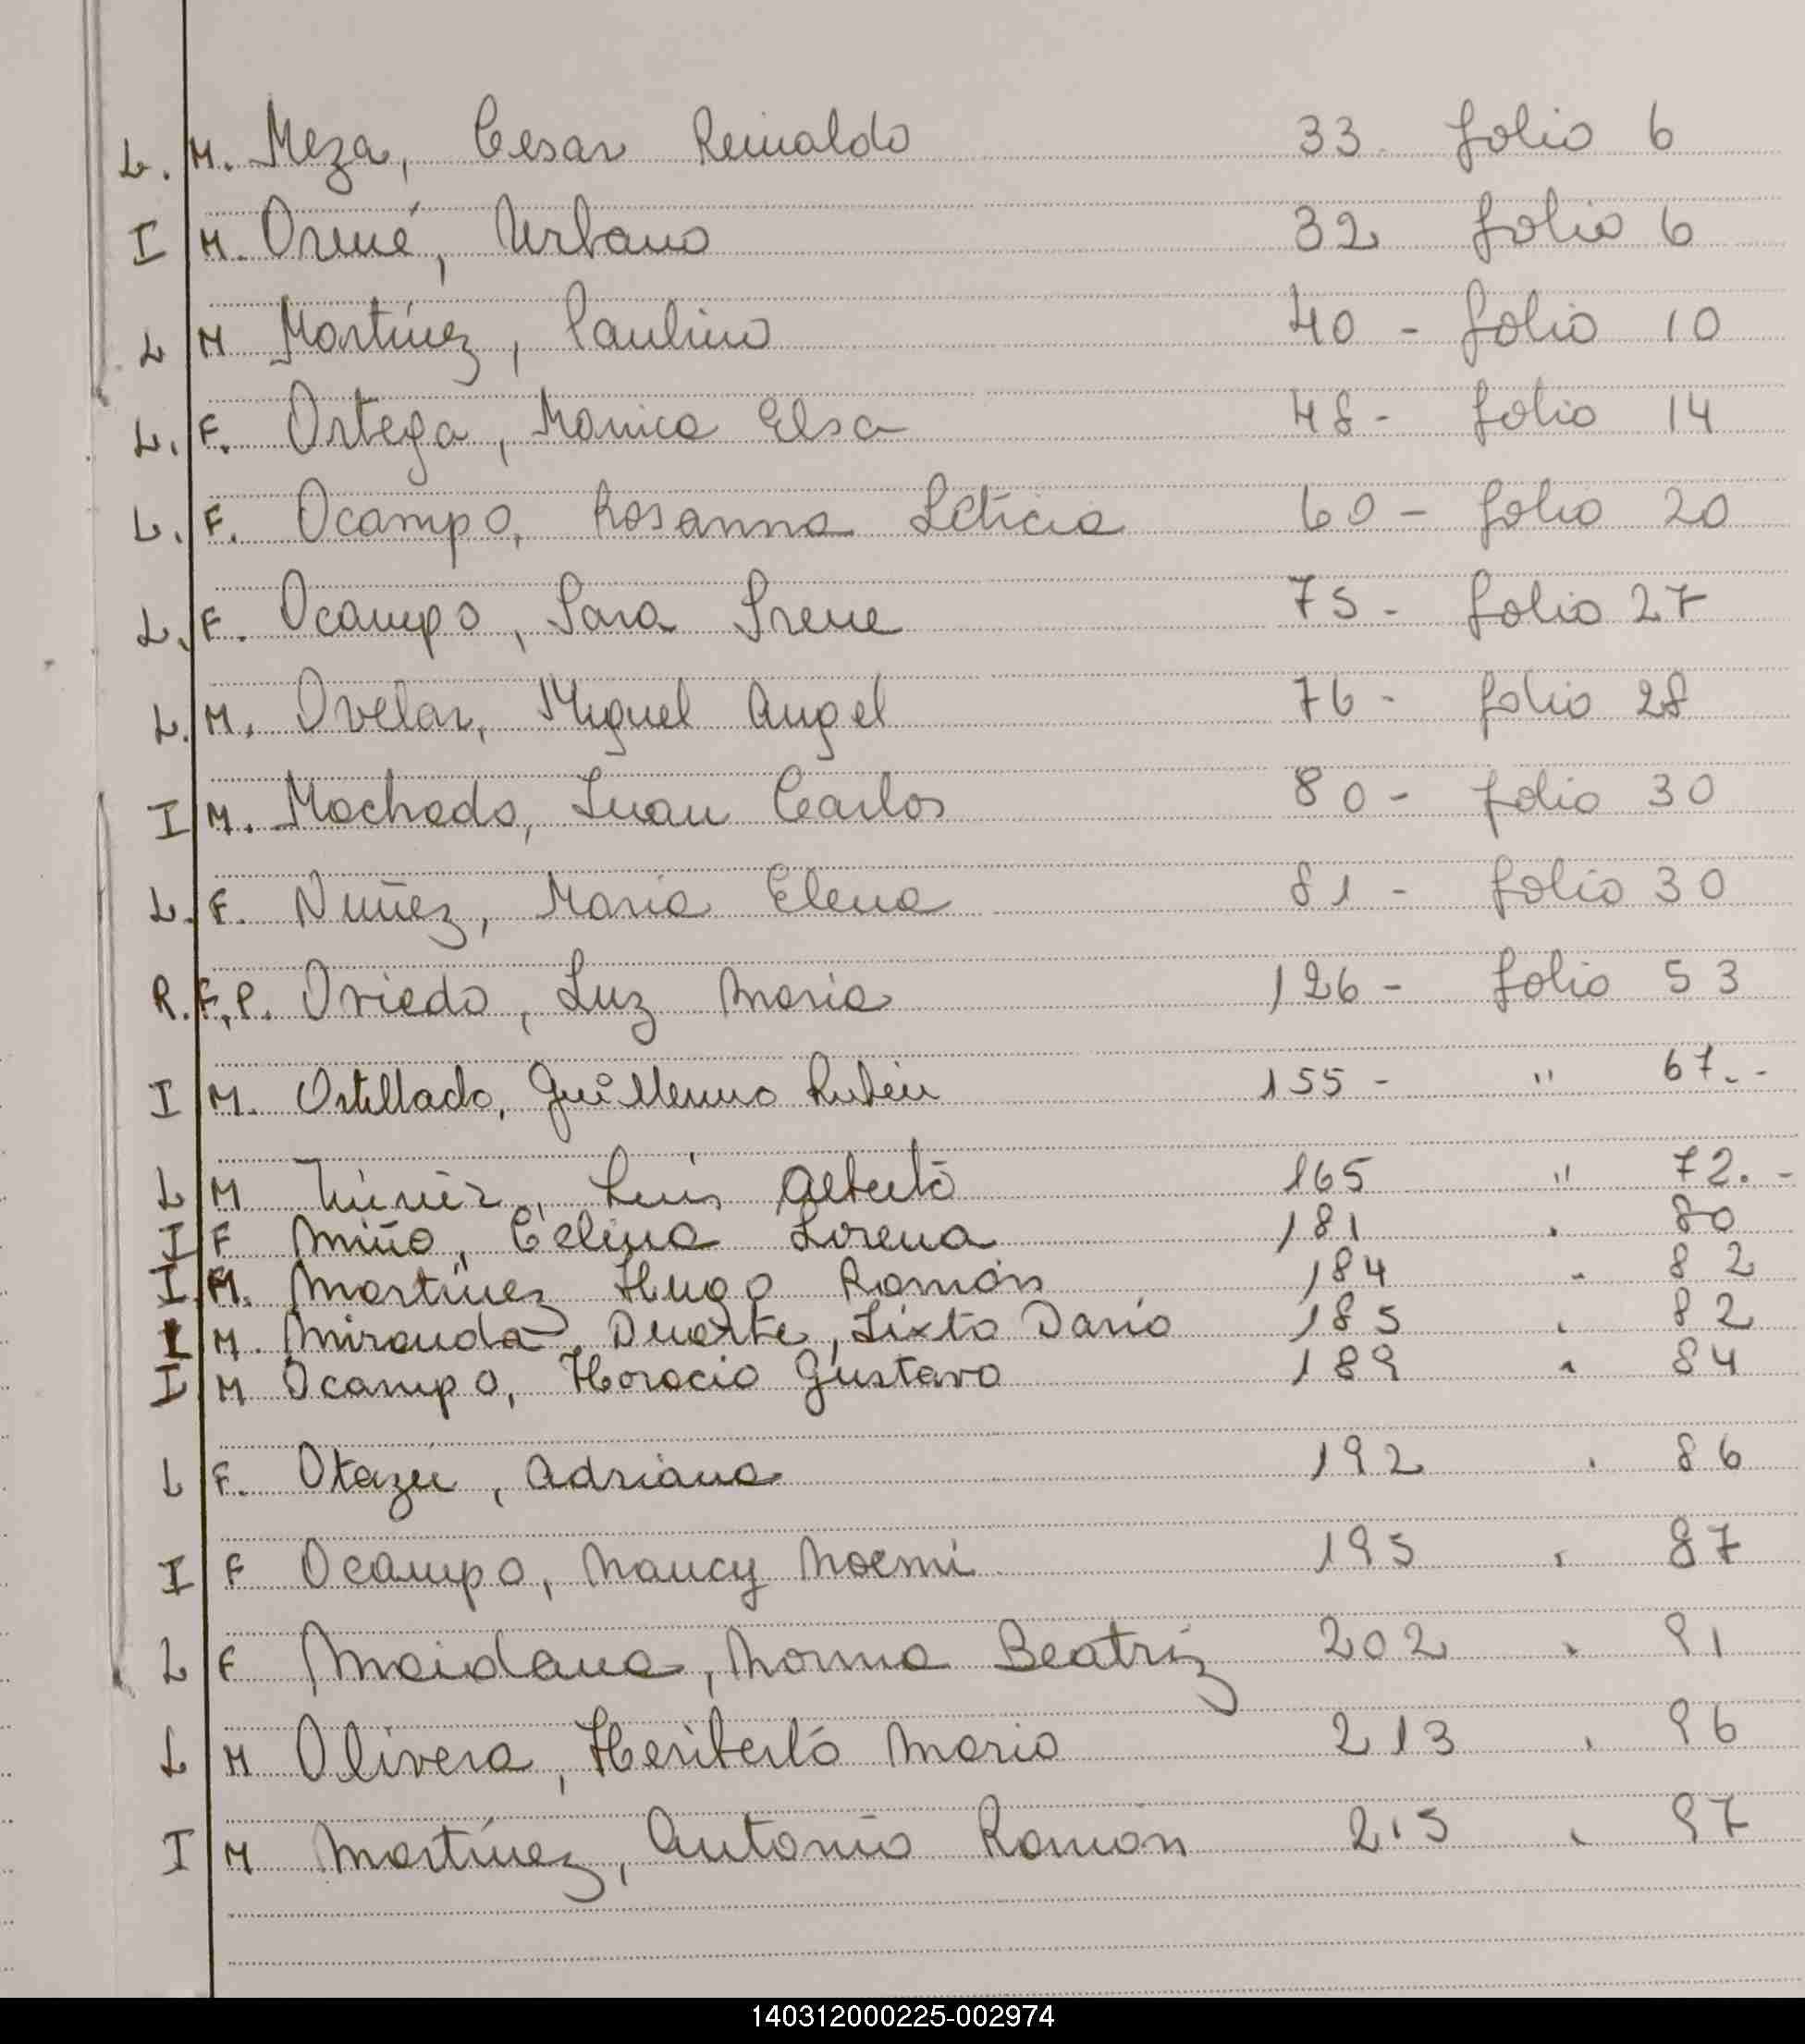 L. M. Meza, Cesar Reinaldo 33 folio 6
I M. Orué, Urbano 32 folio 6
L M Martínez, Paulino 40 - folio 10
L. F. Ortega, Monica Elsa 48 - folio 14
L. F. Ocampo, Rosanna Leticia 60 - folio 20
L. F. Ocampo, Sara Irene 75 - folio 27
L. M. Ovelar, Miguel Angel 76 - folio 28
I M. Machado, Juan Carlos 80 - folio 30
L. F. Nuñez, Maria Elena 81 - folio 30
R. F. P. Oviedo, Luz Maria 126 - folio 53
I M. Ortellado, Guillermo Rubén 155 - " 67.-
L M Núñez, Luis Alberto 165 " 72.-
I F Miño, Celina Lorena 181 " 80
I M. Martínez Hugo Ramón 184 " 82
L M. Miranda Duarte, Sixto Dario 185 " 82
I M Ocampo, Horacio Gustavo 189 " 84
L F. Otazu, Adriana 192 " 86
I F Ocampo, Nancy Noemi 195 " 87
L F Maidana, Norma Beatriz 202 " 91
L M Olivera, Heriberto Mario 213 " 96
I M Martínez, Antonio Ramón 215 " 97
140312000225-002974